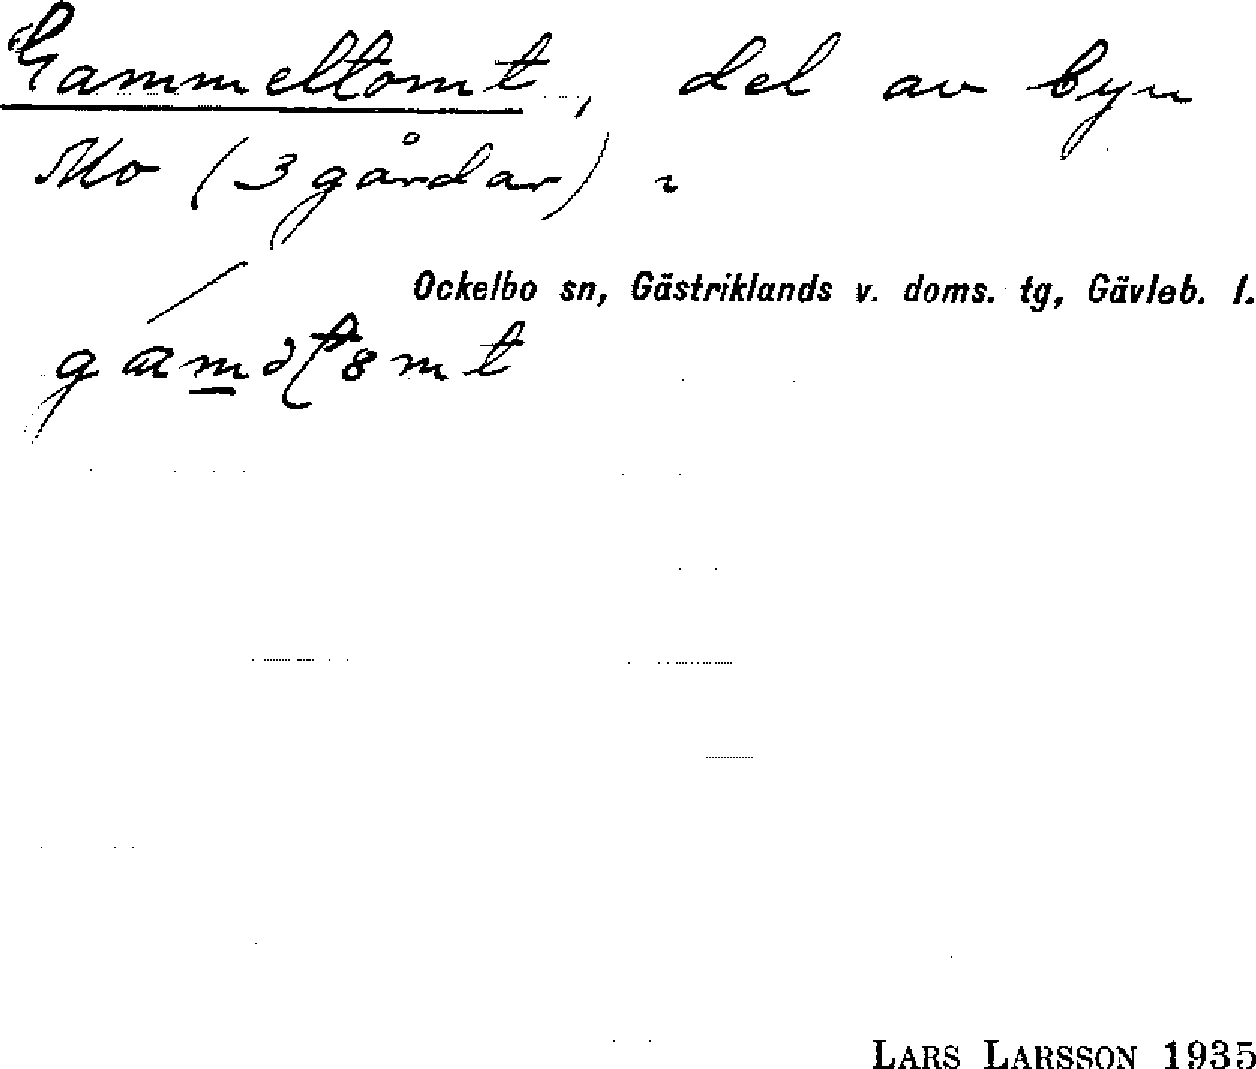 Gammeltomt, del av byn
Mo (3 gårdar).
Ockelbo sn, Gästriklands v. doms. tg, Gävleb. l.
LARS LARSSON 1935